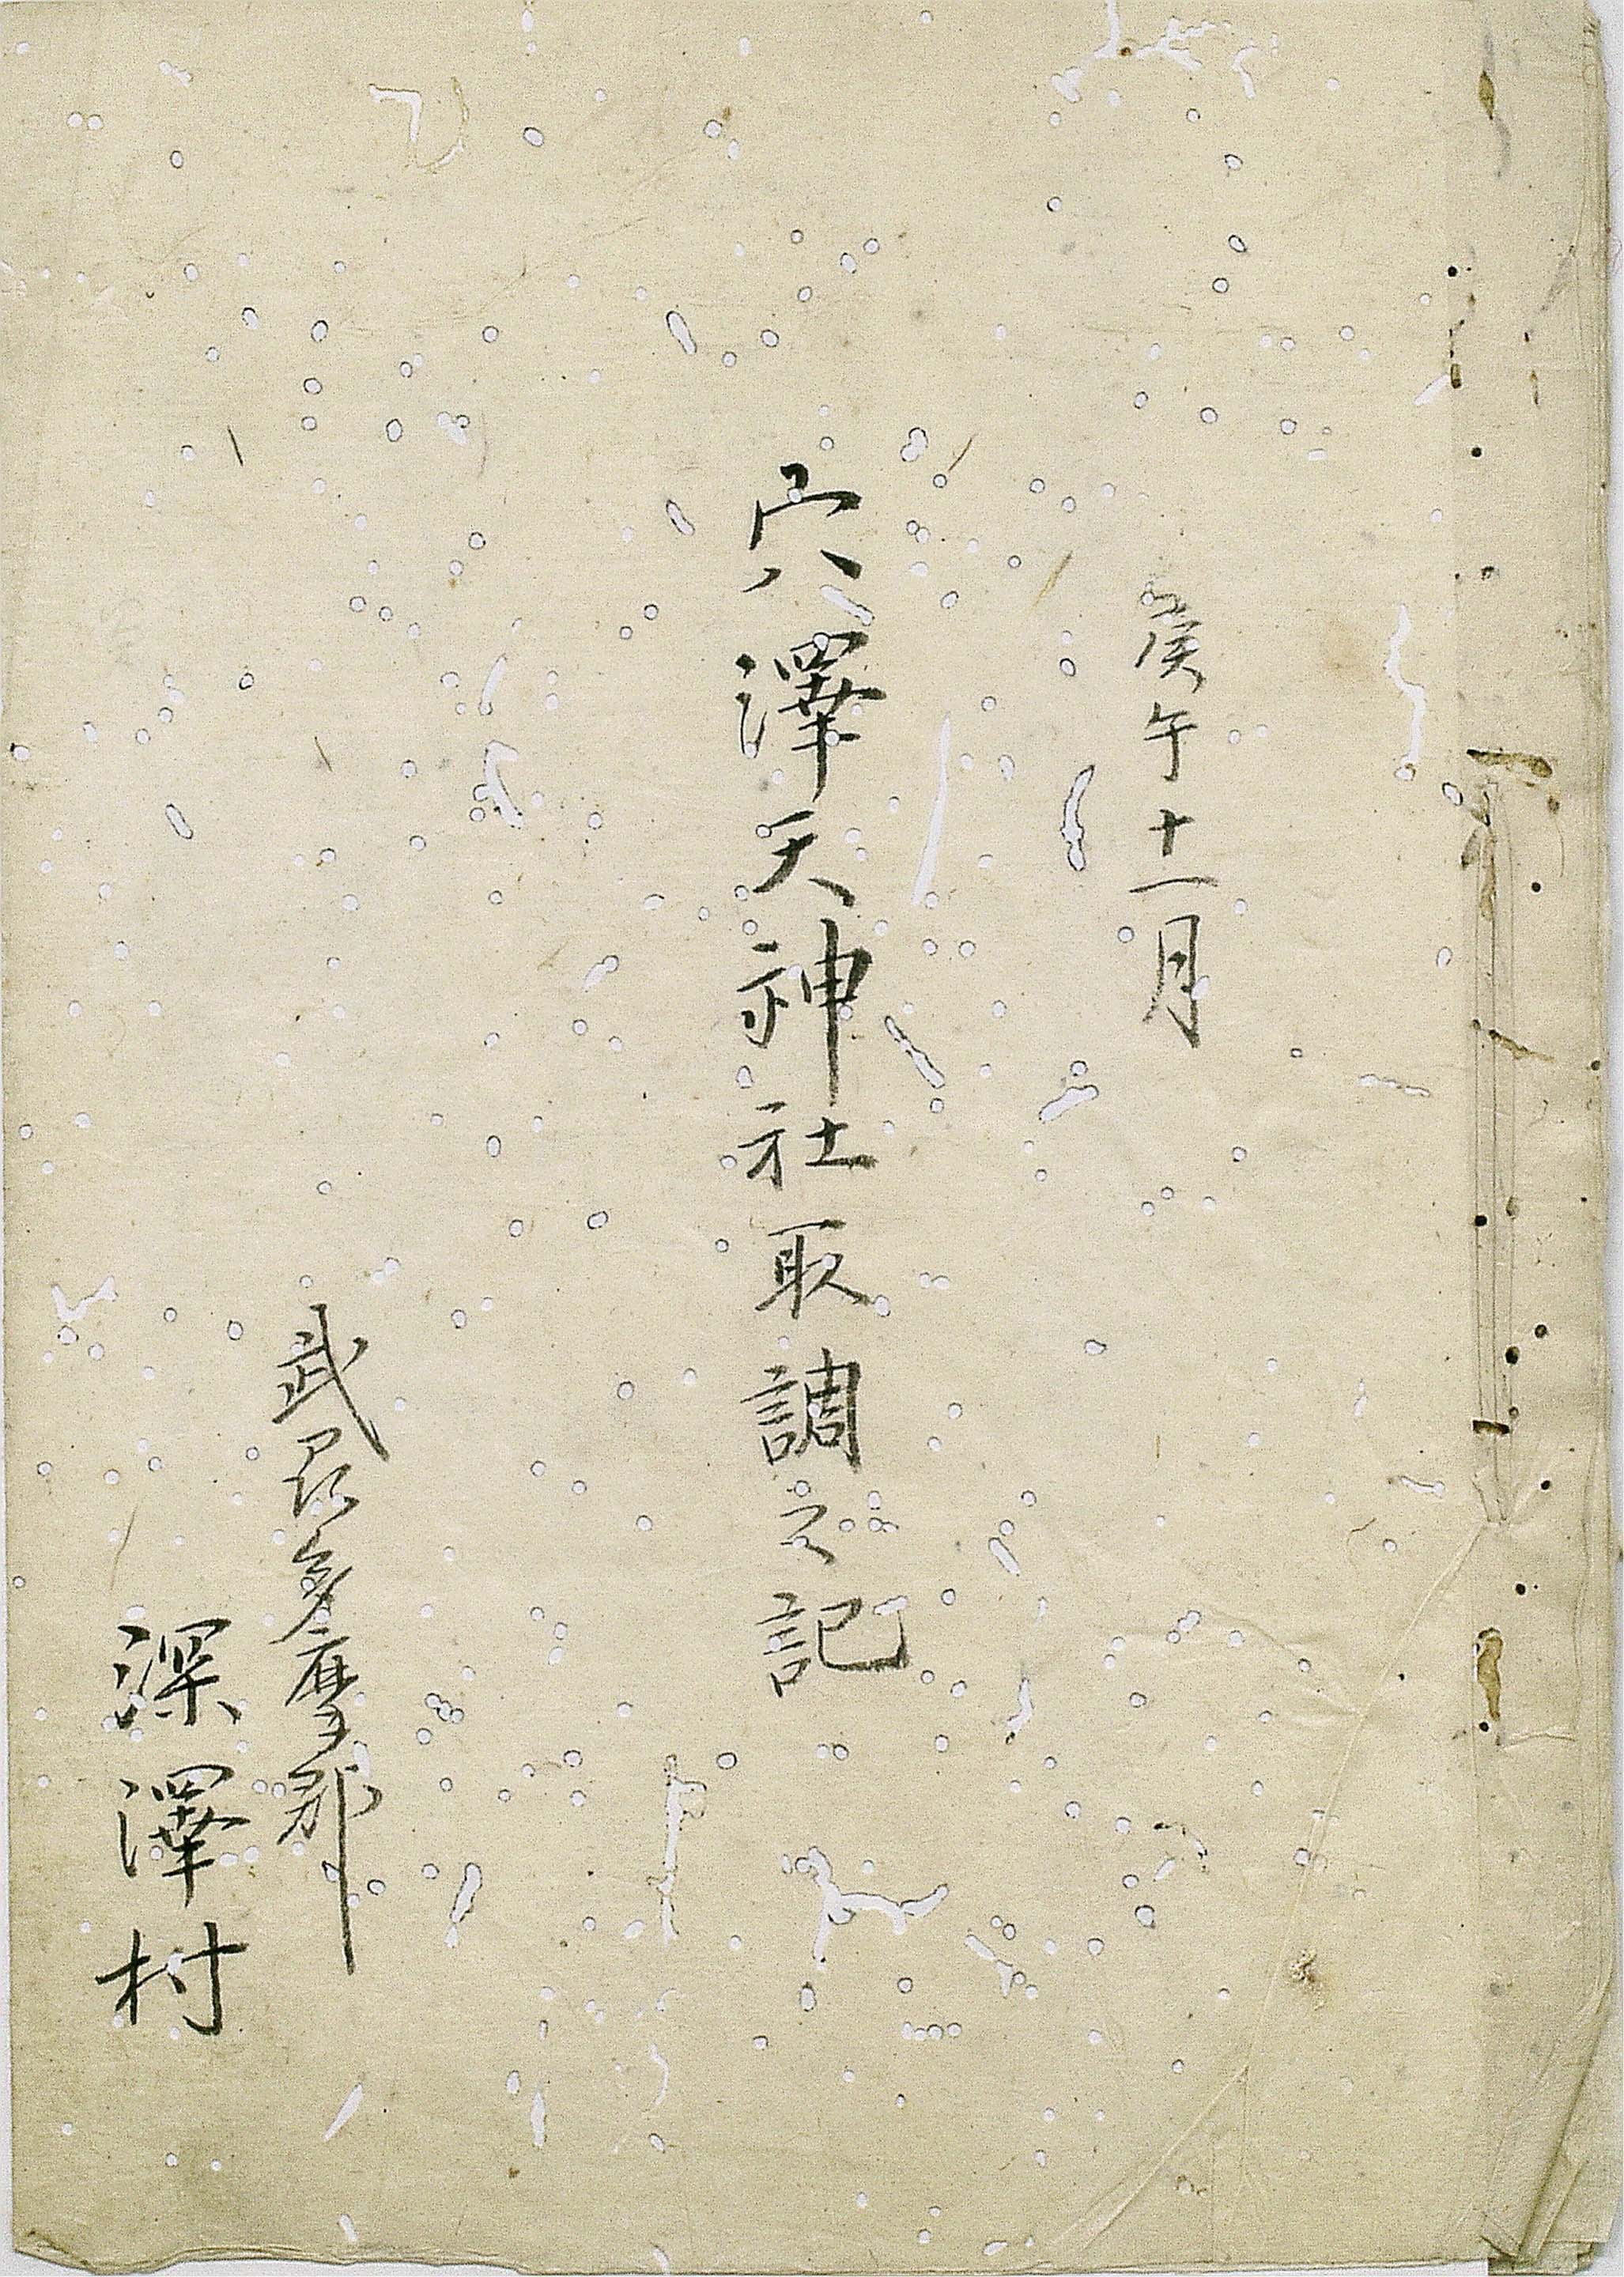 庚午十一月
穴澤天神社取調之記
武州多摩郡
深澤村